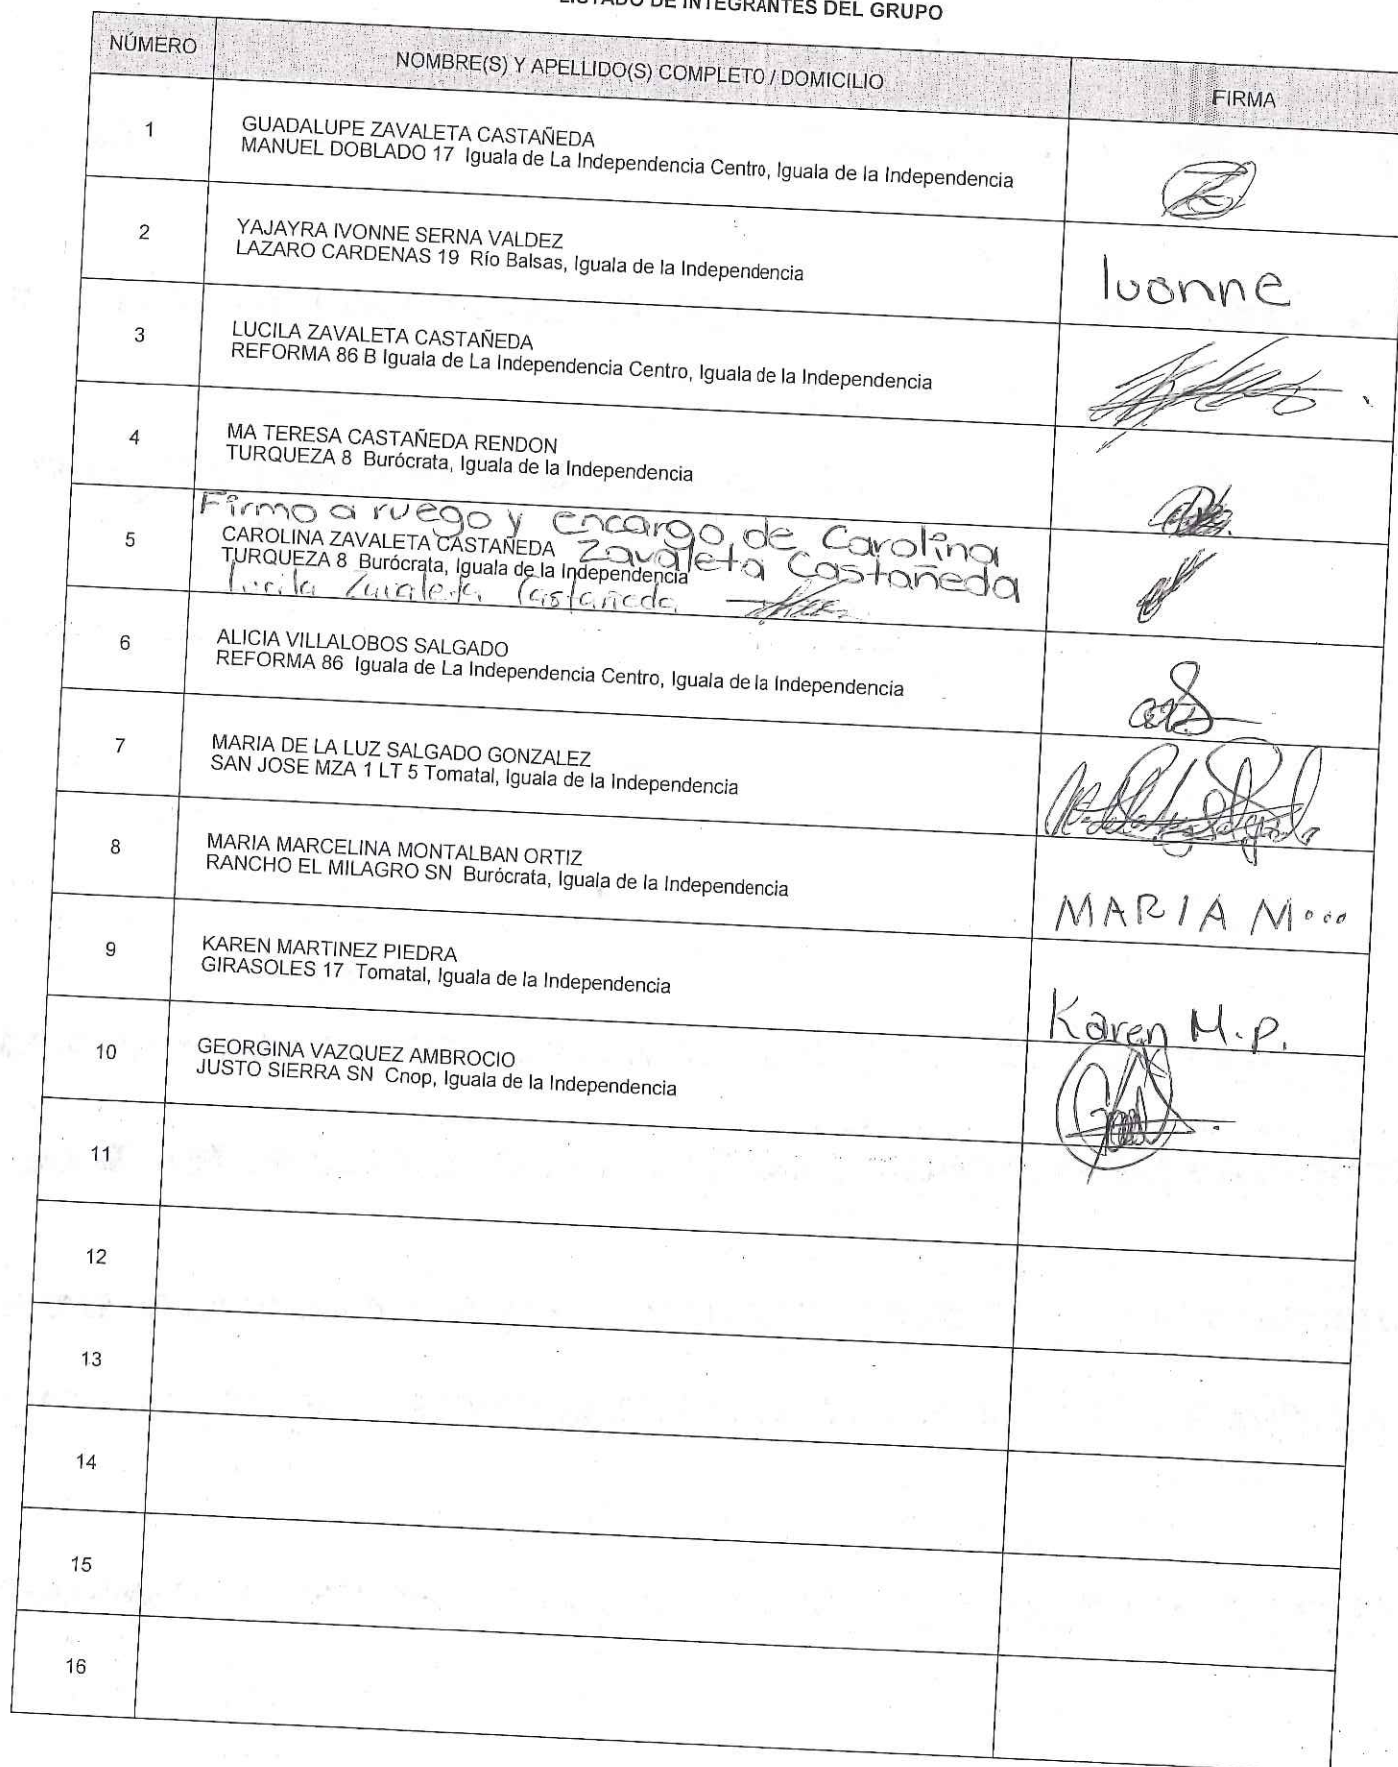 LISTADO DE INTEGRANTES DEL GRUPO
NÚMERO NOMBRE(S) Y APELLIDO(S) COMPLETO / DOMICILIO FIRMA
1 GUADALUPE ZAVALETA CASTAÑEDA
MANUEL DOBLADO 17 Iguala de La Independencia Centro, Iguala de la Independencia
2 YAJAYRA IVONNE SERNA VALDEZ
LAZARO CARDENAS 19 Río Balsas, Iguala de la Independencia
Ivonne
3 LUCILA ZAVALETA CASTAÑEDA
REFORMA 86 B Iguala de La Independencia Centro, Iguala de la Independencia
4 MA TERESA CASTAÑEDA RENDON
TURQUEZA 8 Burócrata, Iguala de la Independencia
Firmo a ruego y encargo de Carolina
Zavaleta Castañeda
5 CAROLINA ZAVALETA CASTAÑEDA
TURQUEZA 8 Burócrata, Iguala de la Independencia
Lucila Zavaleta Castañeda
6 ALICIA VILLALOBOS SALGADO
REFORMA 86 Iguala de La Independencia Centro, Iguala de la Independencia
7 MARIA DE LA LUZ SALGADO GONZALEZ
SAN JOSE MZA 1 LT 5 Tomatal, Iguala de la Independencia
8 MARIA MARCELINA MONTALBAN ORTIZ
RANCHO EL MILAGRO SN Burócrata, Iguala de la Independencia
MARIA M...
9 KAREN MARTINEZ PIEDRA
GIRASOLES 17 Tomatal, Iguala de la Independencia
Karen M.P.
10 GEORGINA VAZQUEZ AMBROCIO
JUSTO SIERRA SN Cnop, Iguala de la Independencia
11
12
13
14
15
16